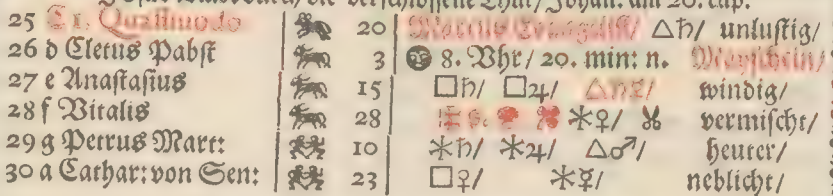 JEsus kombt durch die verschlossene Thür/ Johan. am 20. cap.
25 C 1. Quasimodo 20 Marcus Evangelist/ △♄/ unlustig/
26 d Cletus Pabst 3 8. Vhr/ 20. min: n. Mayschein/
27 e Anastasius 15 □♄/ □♃/ △♄☿/ windig/
28 f Vitalis 28 ⚹♀/ vermischt/
29 g Petrus Mart: 10 ⚹♄/ ⚹♃/ △♂/ heuter/
30 a Cathar: von Sen: 23 □♀/ ⚹☿/ neblicht/